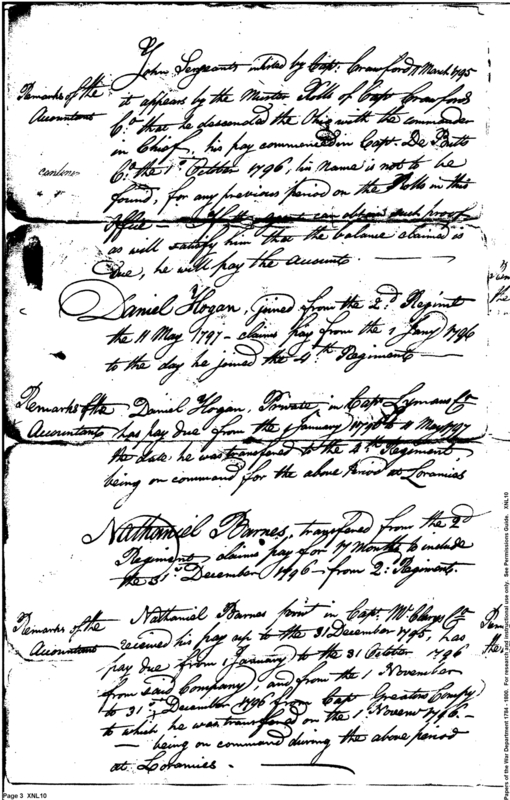 John Sergeants inlisted by Capt. Crawford 11 March 1795
Remarks of the
Accountant
it appears by the Muster Rolls of Capt Crawfords
Co. that he descended the Ohio with the commander
in Chief, his pay commenced in Capt. De Butts
Co. the 1st October 1796, his name is not to be
found, for any previous period on the Rolls in this
office - If the agent can obtain such proof
as will satisfy him that the balance claimed is
due, he will pay the Accounts.
Daniel Hogan, joined from the 2d Regiment
the 11 May 1797 - claims pay from the 1 Jany 1796
to the day he joined the 4th Regiment
Remarks of the
Accountants
Daniel Hogan, Private, in Capt Lymans Co
has pay due from the 1 January 1796 to 11 May 1797
the date he was transfered to the 4th Regiment,
being on command for the above period at Loramies
Nathaniel Barnes, transfered from the 2d
Regiment, claims pay for 7 months to include
the 31st December 1796 - from 2d Regiment.
Remarks of the
Accountant
Nathaniel Barnes in Capt. Co
received his pay up to the 31 December 1795, has
pay due from 1 January to the 31 October 1796
from said Company, and from the 1 November
to 31st December 1796 from Capt Greatons Compy
to which he was transfered on the 1 Novemr 1796 -
- being on command during the above period
at Loramies -
the
Page 3 XNL10
Papers of the War Department 1784 - 1800. For research and instructional use only. See Permissions Guide. XNL10